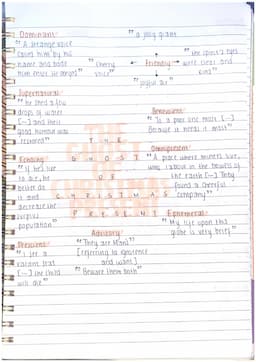 Dominant:
"A strange voice
called him by his
name and bade
him enter. He obeyed"
"a jolly giant"
"cheery
voice"
Friendly
"the spirit's eyes
were clear and
kind"
"joyful air"
Supernatural:
"he shed a few
drops of water
[...] and their
good humour was
restored"
Benevolent:
"To a poor one most [...]
Because it needs it most"
THE
GHOST
OF
CHRISTMAS
PRESENT
Echoing:
"if he's like
to die, he
better do
it and
decrease the
surplus
population"
Omnipresent:
"A place where miners live,
who labour in the bowels of
the earth [...] They
found a cheerful
company"
Ephemeral:
"My life upon this
globe is very brief"
Prescient:
"I see a
vacant seat
[...] the child
will die"
Advisory:
"They are Man's"
[referring to ignorance
and want]
"Beware them both"